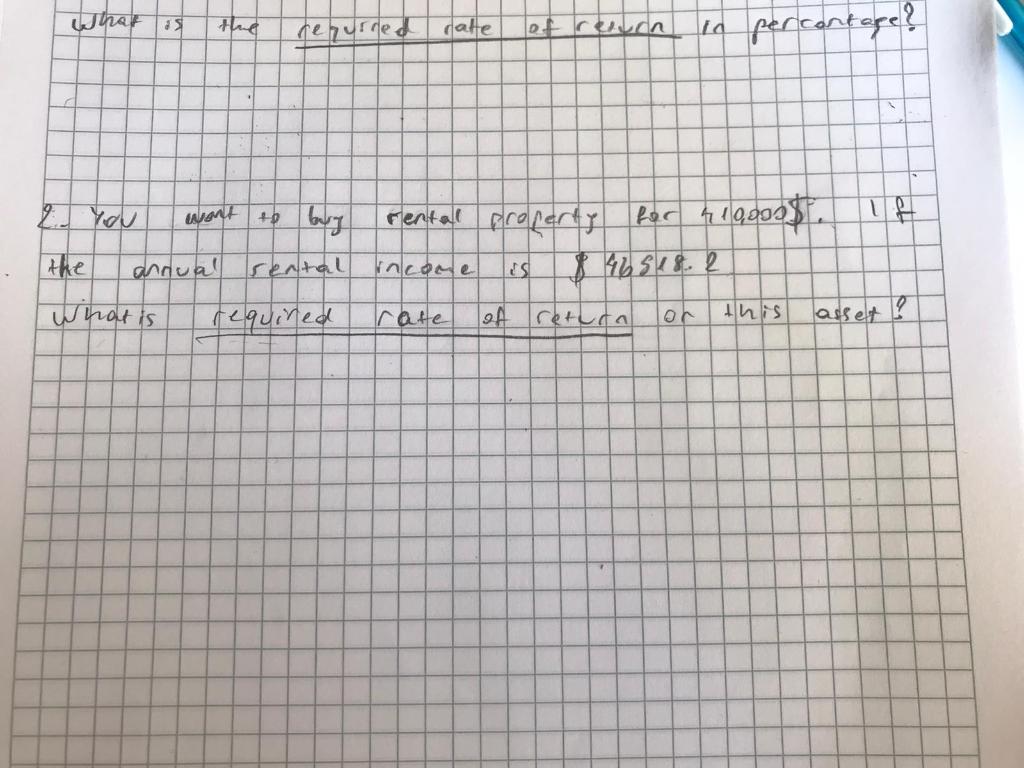 What is the required rate of return in percentage?
2. You want to buy rental property for 410000$. If
the annual rental income is $ 46518.2
What is required rate of return or this asset?